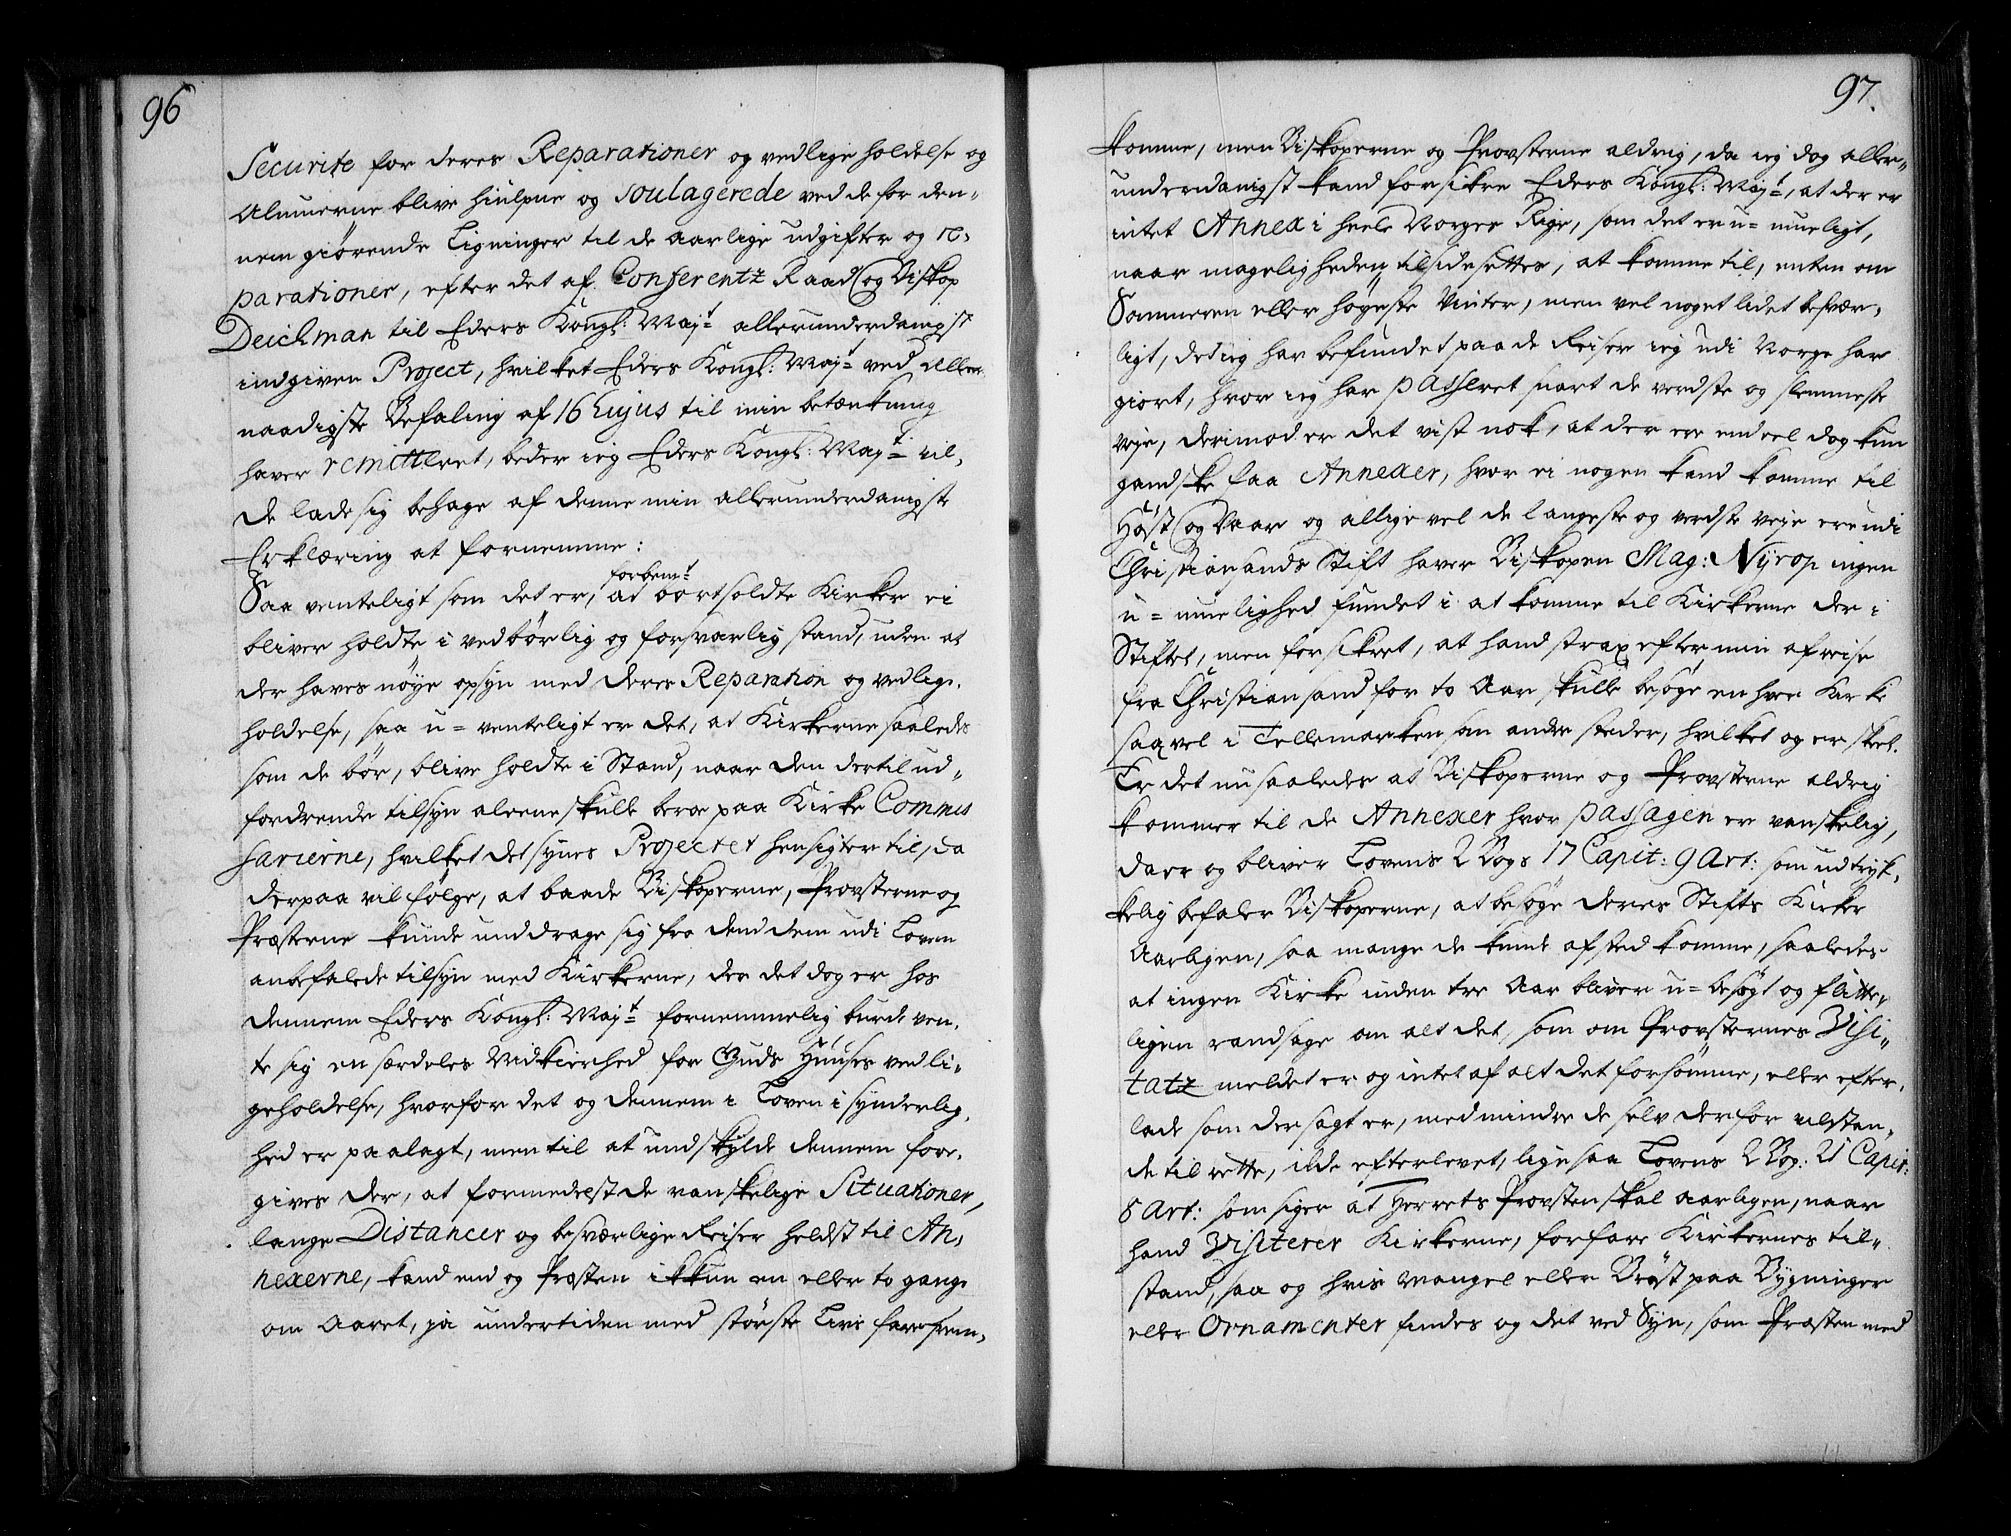 96
Securite for deres Reparationer og vedlige holdelse og
Almuerne blive hiulpne og soulagerede ved de for den-
nem giørende Ligninger til de aarlige udgifter og re-
parationer, efter det af Conferentz Raad og Biskop
Deichman til Eders Kongl: Majt allerunderdanigst
indgiven Project, hvilket Eders Kongl: Majt ved Aller-
naadigste Befaling af 16 hujus til min betænkning
haver remitteret, beder ieg Eders Kongl: Majt vil-
de lade sig behage af denne min allerunderdanigst
Erklæring at fornemme:
forbemt
Saa venteligt som det er, at bortsoldte Kirker ei
bliver holdte i vedbørlig og forsvarlig stand, uden at
der haves nøye opsyn med deres Reparation og vedlige-
holdelse, saa u-venteligt er det, at Kirkerne saaledes
som de bør, blive holdte i Stand, naar den dertil ud-
fordrende tilsyn alleene skulle beroe paa Kirke Commis
sarierne, hvilket det synes Projectet hensigter til, da
derpaa vil følge, at baade Biskoperne, Provsterne og
Præsterne kunde unddrage sig fra dend dem udi Loven
anbefalede tilsyn med Kirkerne, der det dog er hos
dennem Eders Kongl: Majt fornemmelig burde ven-
te sig en særdeles Nidkierhed for Guds Huuses vedli-
geholdelse, hvorfor det og dennem i Loven i synderlig-
hed er paalagt, men til at undskylde dennem fore-
gives der, at formedelst de vanskelige Situationer,
lange Distancer og besværlige Reiser heldst til An-
nexerne, kand end og Præsten ikkun en eller to gange
om Aaret, ja undertiden med største Livs fare frem-
97.
komme, men Biskoperne og Provsterne aldrig, da ieg dog aller-
underdanigst kand forsikre Eders Kongl: Majt, at der er
intet Annex i heele Norges Rige, som det er u-mueligt,
naar mageligheden tilsidesettes, at komme til, enten om
Sommeren eller høyeste Vinter, men vel noget lidet besvær-
ligt, det ieg har befundet paa de Reiser ieg udi Norge har
giort, hvor ieg har passeret snart de verdste og slemmeste
veje, derimod er det vist nok, at der ere endeel dog kun
gandske faa Annexer, hvor ei nogen kand komme til
Høst og Vaar og alligevel de langeste og verdste veje ere udi
Christiansands Stift haver Biskopen Mag: Nyrop ingen
u-muelighed fundet i at komme til Kirkerne der i
Stiftet, men forsikret, at hand strax efter min afreise
fra Christiansand for to Aar skulle besøge en hver Kirke
saavel i Tellemarken som andre steder, hvilket og er skeet.
Er det nu saaledes at Biskoperne og Provsterne aldrig
kommer til de Annexer hvor passagen er vanskelig,
da er og bliver Lovens 2 Bogs 17 Capit: 9 Art: som udtryk-
kelig befaler Biskoperne, at besøge deres Stifts Kirker
Aarligen, saa mange de kunde afsted komme, saaledes
at ingen Kirke inden tre Aar bliver u-besøgt og flitte-
ligen randsage om alt det, som om Provsternes Visi-
tatz meldet er og intet af alt det forsømme, eller efter-
lade som der sagt er, med mindre de selv derfor vil stan-
de til rette, ilde efterlevet, lige saa Lovens 2 Bog: 21 Capit:
8 Art: som siger at Herrets Provsten skal Aarligen, naar
hand Visiterer Kirkerne, forfare Kirkernes til-
stand, saa og hvis Mangel eller Brøst paa Bygninger
eller Ornamenter findes og det ved Syn, som Præsten med